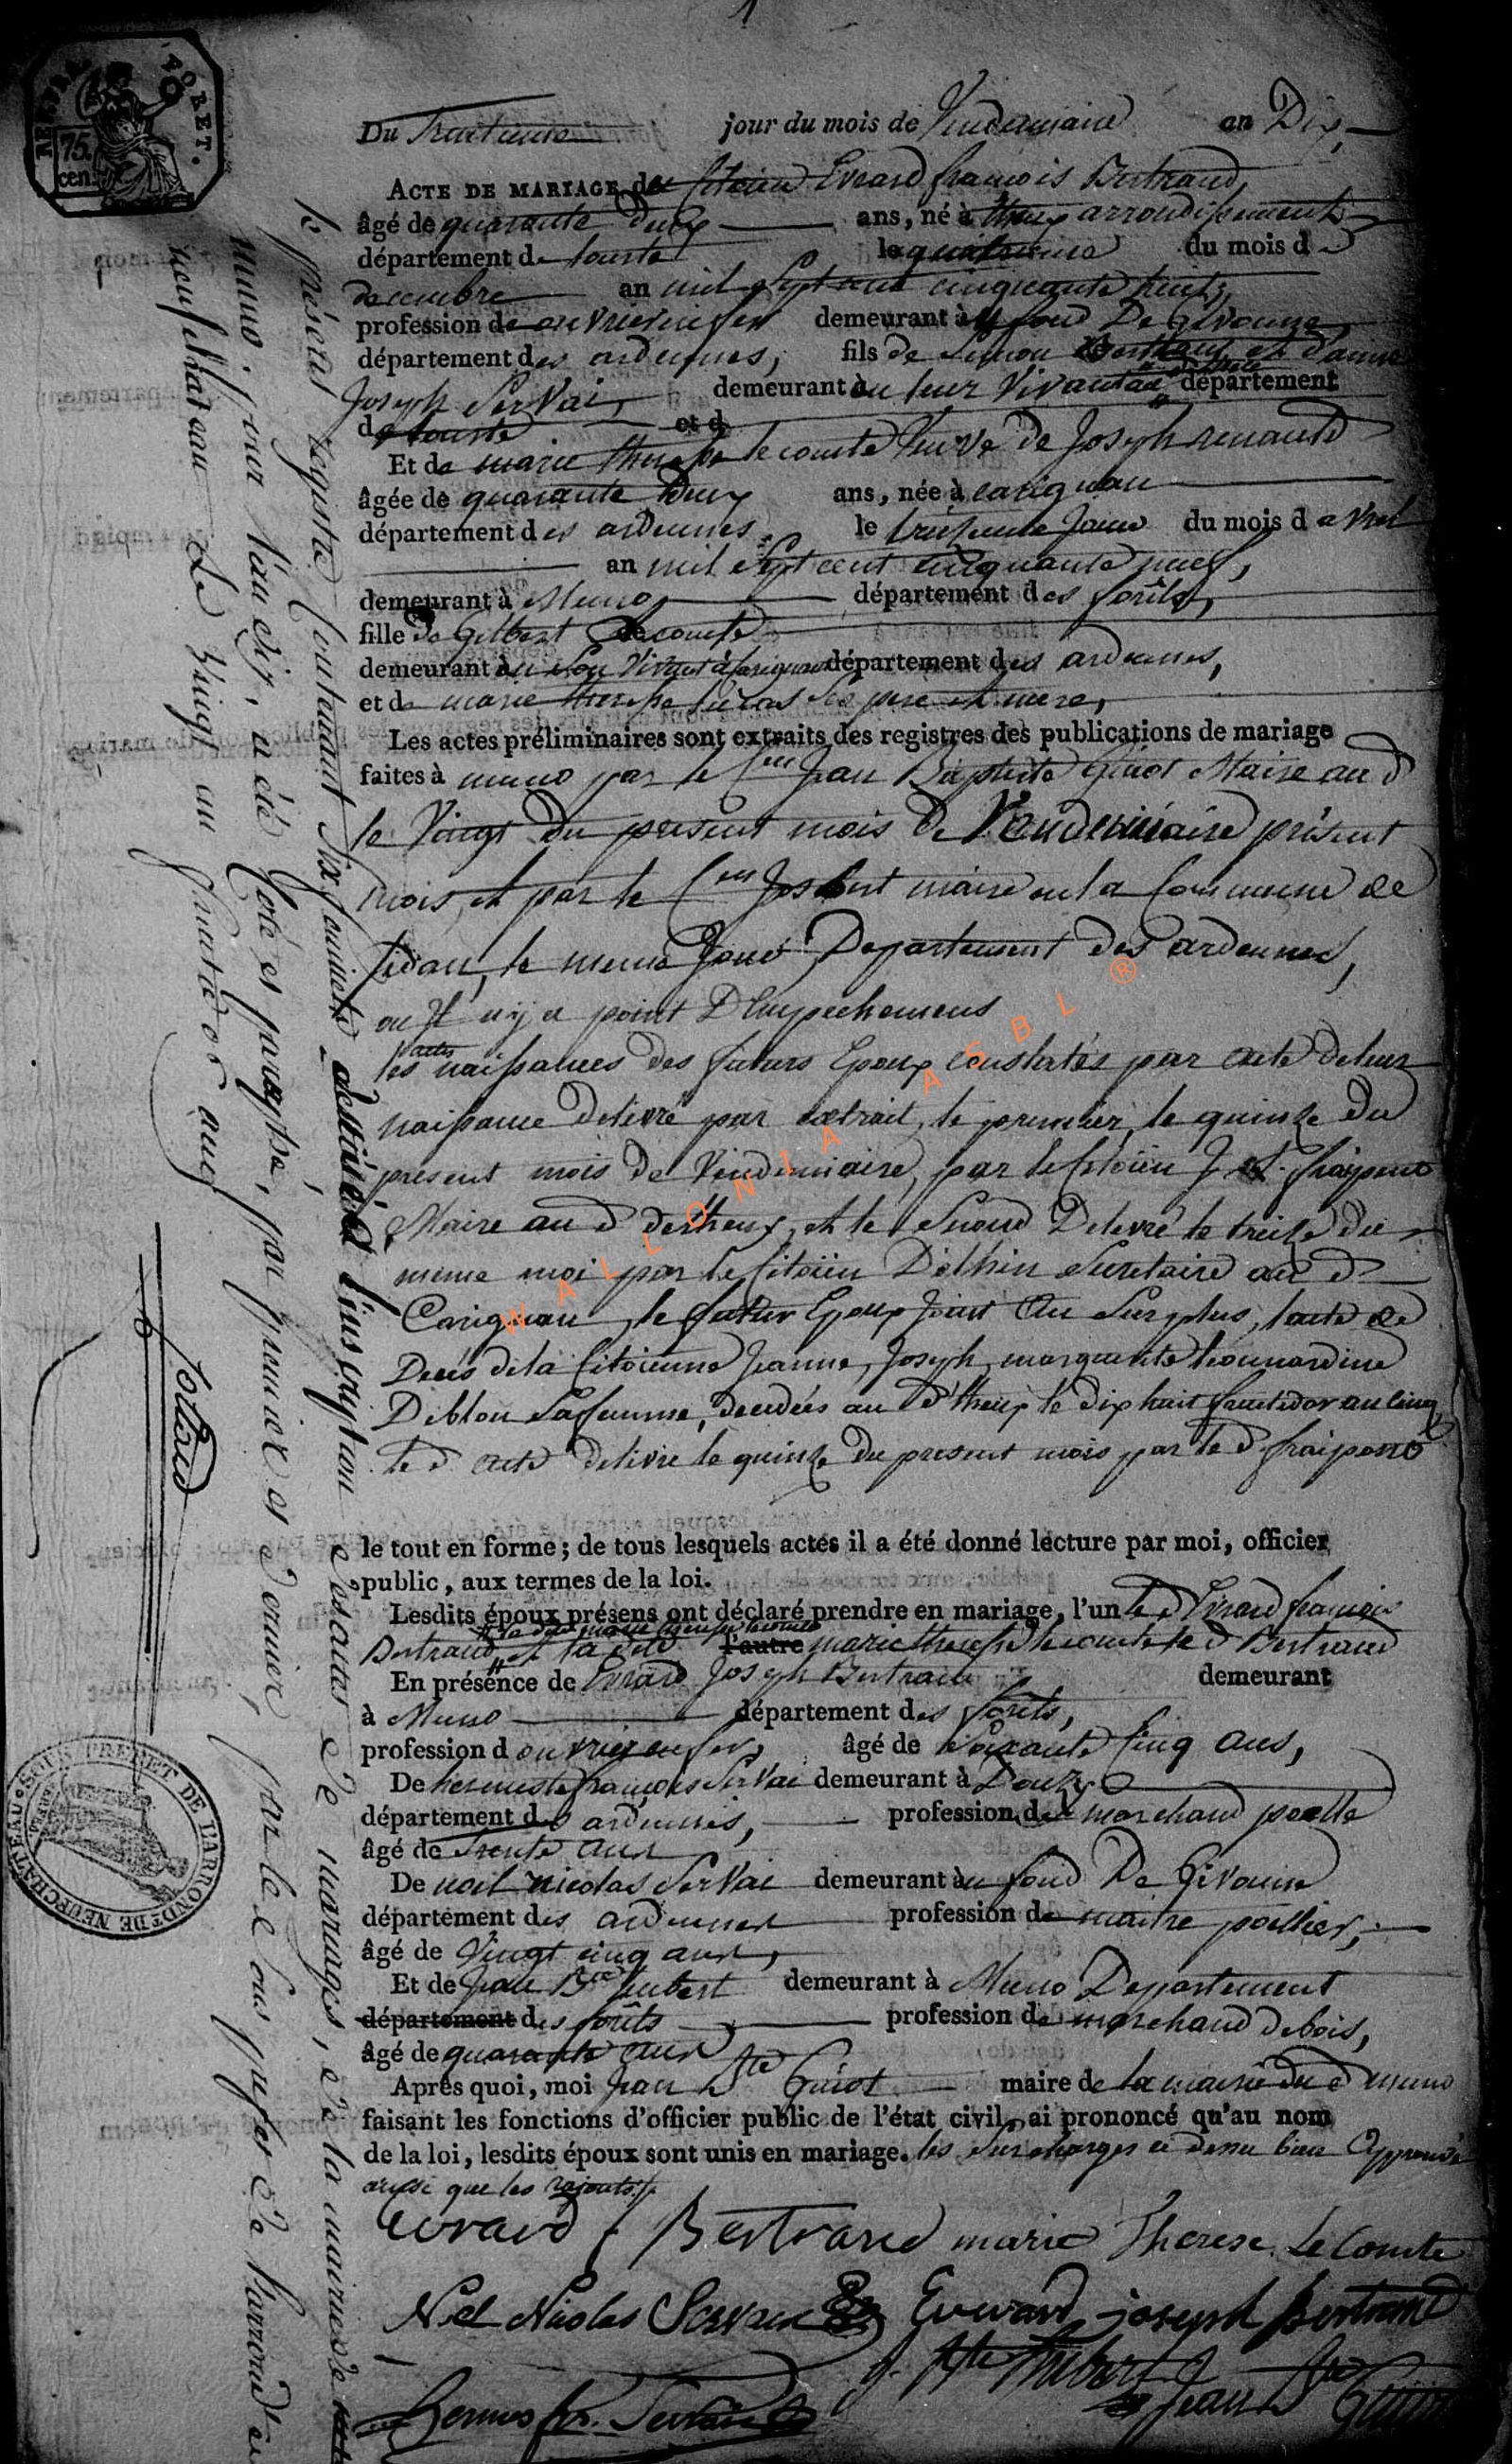 Du Trentieme jour du mois de Vendemiaire an Dix,
ACTE DE MARIAGE du Citoien Evrard françois Bertrand,
âgé de quarante deux ans, né à theux arrondissement
département de l'ourte le quatrieme du mois d
decembre an mil Sept cent cinquante huit,
profession de ouvrier en fer demeurant à fond De Givonne,
département des ardennes, fils de Simon Bertrand et d'anne
Joseph Servai, demeurant en leur vivant au département
de l'ourte et d
Et de marie therese le comte Veuve de Joseph renauld
âgée de quarante Deux ans, née à carignan
département des ardennes, le treizieme Jour du mois d avril
an mil Sept cent cinquante neuf,
demeurant à Muno, département des forêts,
fille de Gilbert Lecomte
demeurant en son vivant à Carignan département des ardennes,
et de marie therese ses pere et mere,
Les actes préliminaires sont extraits des registres des publications de mariage
faites à muno par le Cen Jean Baptiste Guiot Maire au d
le Vingt du present mois de Vendemiaire présent
mois, et par le Cen maire en la Commune de
Sedan, le meme Jour Departement Des ardennes,
ou Il n'y a point D'Empechemens
les actes naissances des futurs Epoux constatés par acte de leur
naissance delivré par extrait, le premier, le quinze du
present mois de Vendemiaire, par le Citoien J. fraipont
Maire au d de theux, et le Second Delivré le treize du
meme moi par le Citoien Dethin Secretaire au d
Carignan, le futur Epoux Joint au Surplus, l'acte de
Deces de la Citoienne Jeanne, Joseph, marguerite Leonnardine
Deblon Sa femme, decedées au d theux le dix huit fructidor an cinq
le d acte delivré le quinze Du present mois par le d fraipont
le tout en forme; de tous lesquels actes il a été donné lecture par moi, officier
public, aux termes de la loi.
Lesdits époux présens ont déclaré prendre en mariage, l'un le d Evrard françois
la dite marie therese lecomte
Bertrand, et la dite l'autre marie therese lecomte le d Bertrand
En présence de Evrard Joseph Bertrand demeurant
à Muno département des forêts,
profession d ouvrier en fer, âgé de Soixante Cinq ans,
De hermes francois Servai demeurant à Douzy
département des ardennes, profession de marchand poelle
âgé de Trente ans
De noel nicolas Servai demeurant au fond De Givonne
département des ardennes profession de maitre poellier,
âgé de Vingt cinq ans,
Et de Jean Bte hubert demeurant à Muno Departement
département des forêts profession de marchand de bois,
âgé de quarante ans
Après quoi, moi Jean Bte Guiot maire de la mairie du d muno
faisant les fonctions d'officier public de l'état civil, ai prononcé qu'au nom
de la loi, lesdits époux sont unis en mariage. les surcharges ci dessu bien Approuvé
aussi que les rajouts
Evrard f Bertrand marie Therese Le Comte
Noel Nicolas Servais Evrard joseph Bertrand
J. Bte Hubert
Hermes fr. Servais Jean Bte Guiot
le présent registre contenant six feuillets destiné à l'inscription des actes de mariages, de la mairie de
muno, pour l'an dix, a été coté et paraphé, par premier et dernier, par le sous prefet de l'arrond. de
neufchateau Le Vingt un fructidor an 9
Collard
75 cen.
SOUS PREFET DE L'ARRONDt DE NEUFCHATEAU
WALLONIA ASBL ®